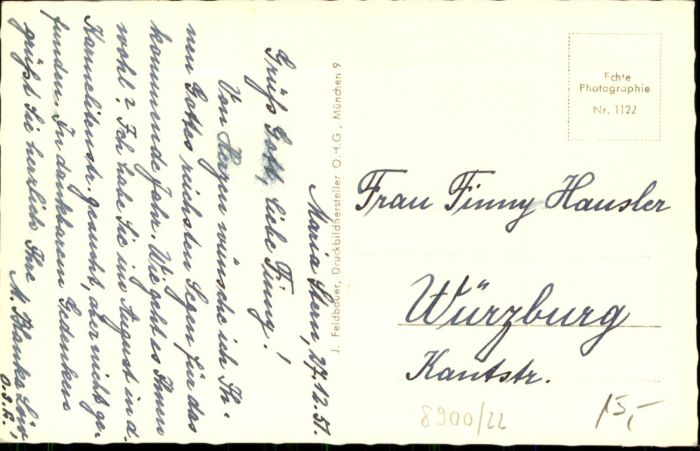 Maria Stern, 27.12.51.
Grüß Gott, liebe Finny!
Von Herzen wünsche ich Ih-
nen Gottes reichsten Segen für das
kommende Jahr. Wie geht es Ihnen
wohl? Ich habe Sie im August in d.
Karmelitenstr. gesucht, aber nicht ge-
funden. In dankbarem Gedenken
grüßt Sie herzlich Ihre
M. Blanka
O.S.F.
J. Feldbauer, Druckbildhersteller O.H.G., München 9
Echte
Photographie
Nr. 1122
Frau Finny Hausler
Würzburg
Kantstr.
8900/22
15,-